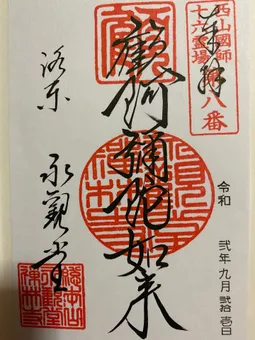 奉拝
西山國師
十六霊場
第八番
阿彌陀如来
令和 弐年九月弐拾壱日
洛東 永觀堂
永觀堂
禅林寺